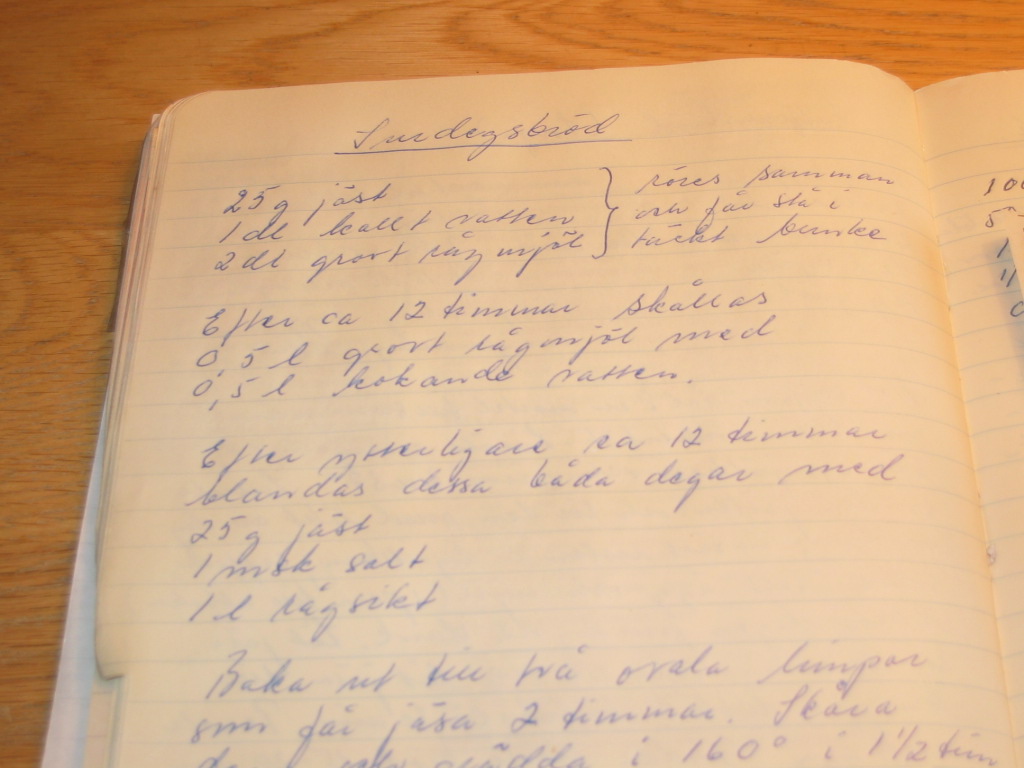 Surdegsbröd
25 g jäst
1 dl kallt vatten
2 dl grovt rågmjöl
röres samman
och får stå i
täckt bunke
Efter ca 12 timmar skållas
0,5 l grovt rågmjöl med
0,5 l kokande vatten.
Efter ytterligare ca 12 timmar
blandas dessa båda degar med
25 g jäst
1 msk salt
1 l rågsikt
Baka ut till två ovala limpor
som får jäsa 2 timmar. Skåra
i 160° i 1 1/2 tim